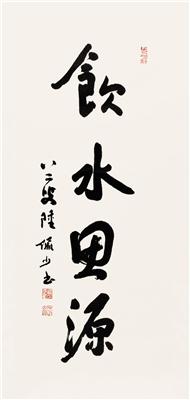 飲水思源
八二叟陸儼少書